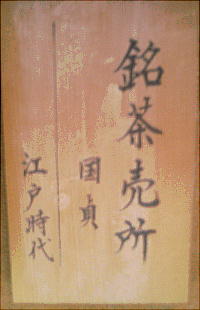 銘茶売所
国貞
江戸時代